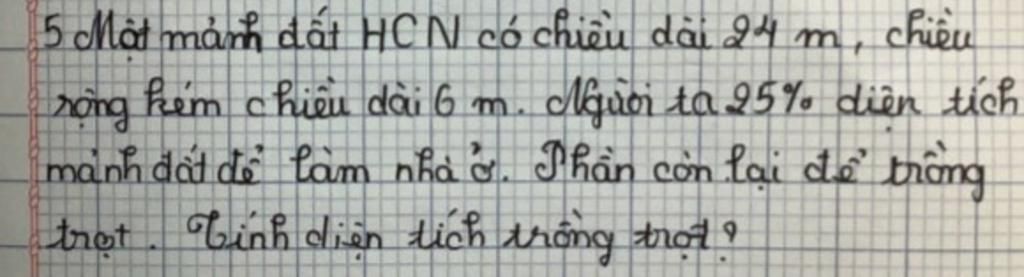 5 Một mảnh đất HCN có chiều dài 24 m, chiều
rộng kém chiều dài 6 m. Người ta 25% diện tích
mảnh đất để làm nhà ở. Phần còn lại để trồng
trọt. Tính diện tích trồng trọt?